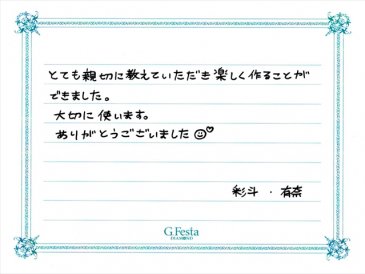 とても親切に教えていただき楽しく作ることが
できました。
大切に使います。
ありがとうございました☺♡
彩斗・有奈
G.Festa
DIAMOND